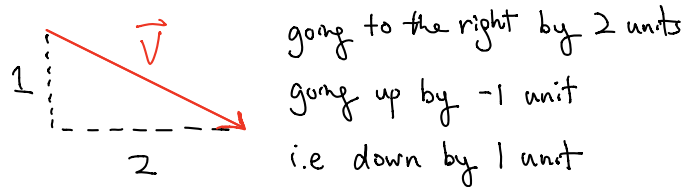 V
going to the right by 2 units
1
going up by -1 unit
2
i.e down by 1 unit